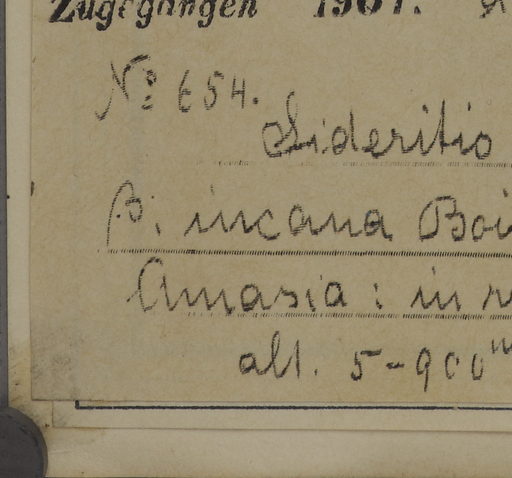 Zugegangen 1901.
No 654.
Sideritis
β. incana Boi
Amasia: in r
alt. 5-900 m